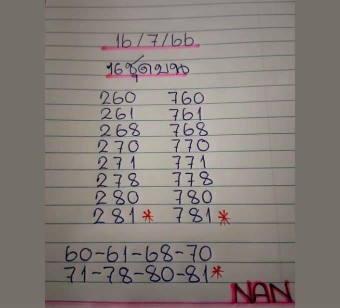 16/7/66
16ชุดบน
260 760
261 761
268 768
270 770
271 771
278 778
280 780
281* 781*
60-61-68-70
71-78-80-81*
NAN